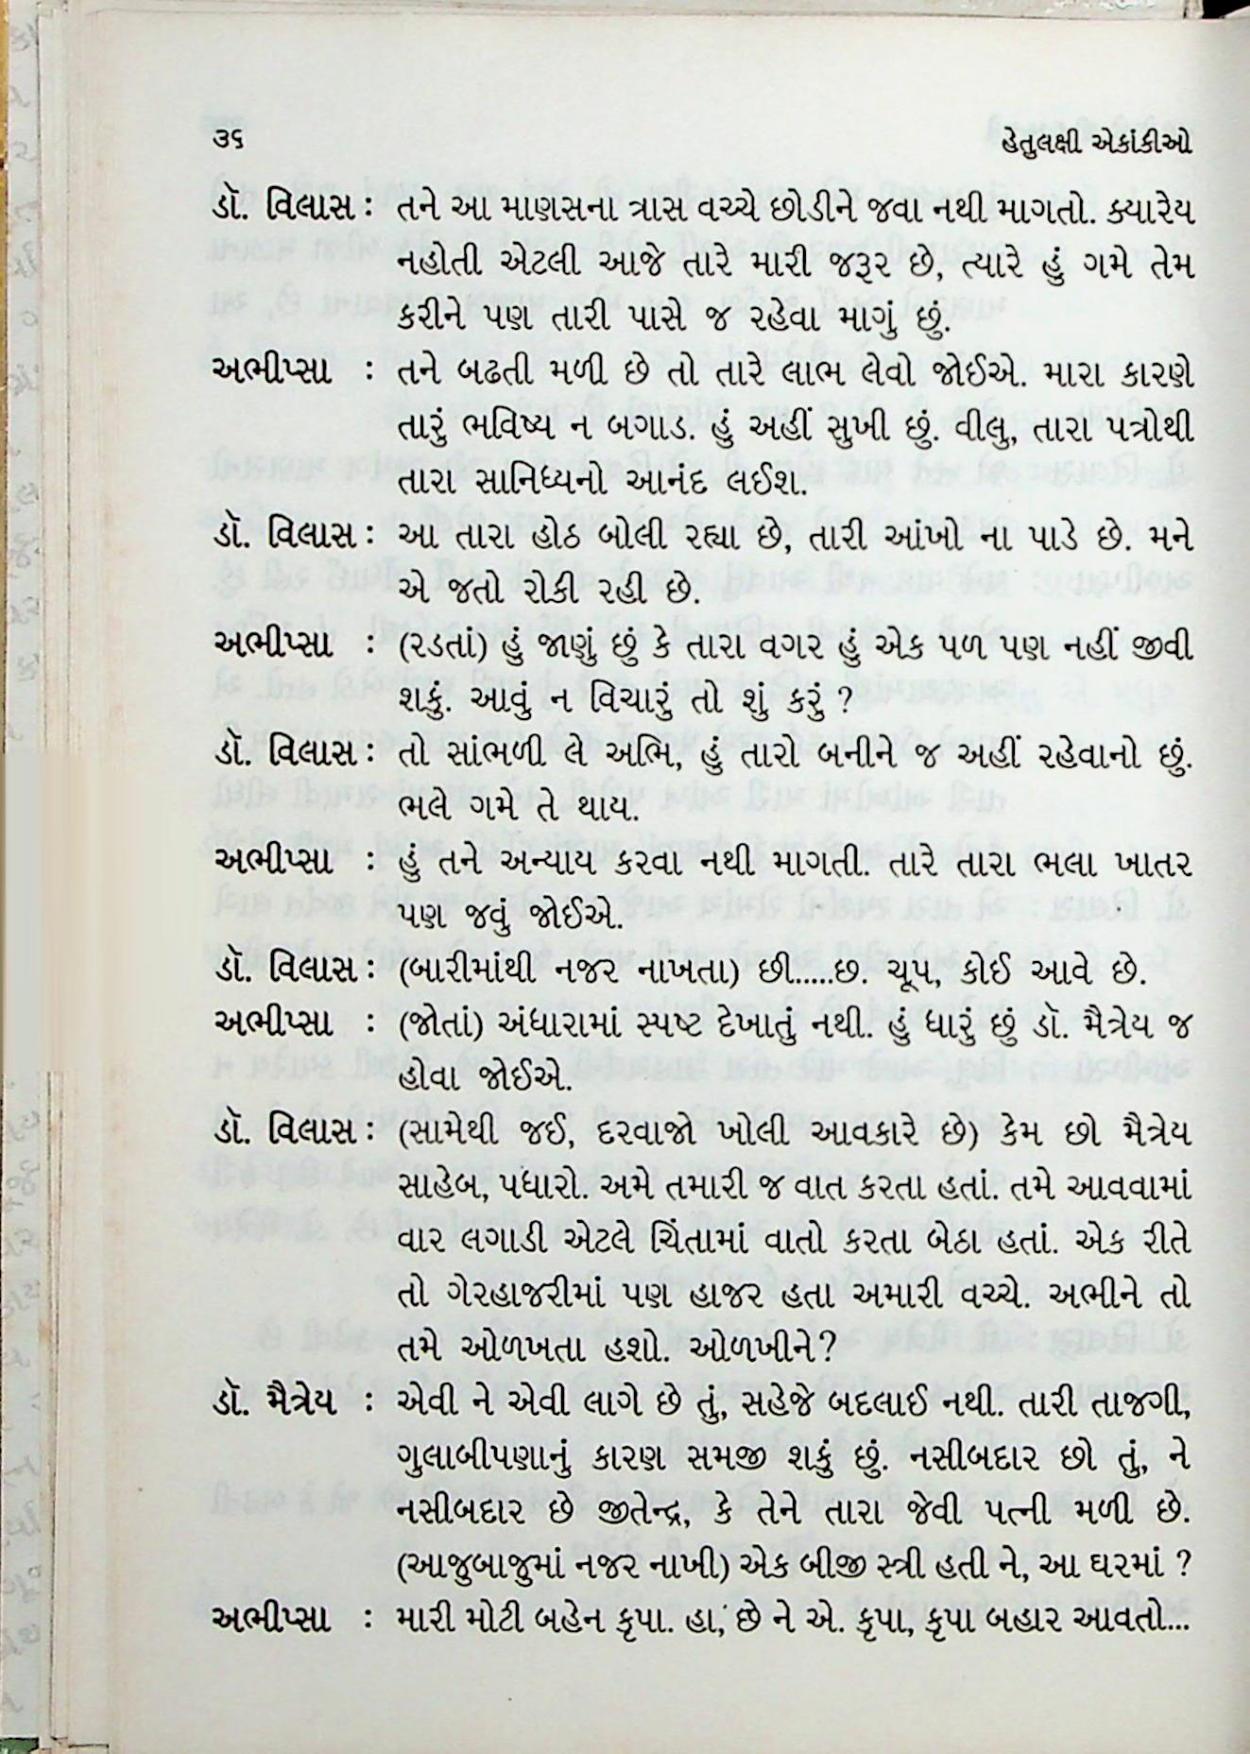 ૩૬ હેતુલક્ષી એકાંકીઓ
ડૉ. વિલાસ : તને આ માણસના ત્રાસ વચ્ચે છોડીને જવા નથી માગતો. ક્યારેય
નહોતી એટલી આજે તારે મારી જરૂર છે, ત્યારે હું ગમે તેમ
કરીને પણ તારી પાસે જ રહેવા માગું છું.
અભીપ્સા : તને બઢતી મળી છે તો તારે લાભ લેવો જોઈએ. મારા કારણે
તારું ભવિષ્ય ન બગાડ. હું અહીં સુખી છું. વીલુ, તારા પત્રોથી
તારા સાનિધ્યનો આનંદ લઈશ.
ડૉ. વિલાસ : આ તારા હોઠ બોલી રહ્યા છે, તારી આંખો ના પાડે છે. મને
એ જતો રોકી રહી છે.
અભીપ્સા : (રડતાં) હું જાણું છું કે તારા વગર હું એક પળ પણ નહીં જીવી
શકું. આવું ન વિચારું તો શું કરું ?
ડૉ. વિલાસ : તો સાંભળી લે અભિ, હું તારો બનીને જ અહીં રહેવાનો છું.
ભલે ગમે તે થાય.
અભીપ્સા : હું તને અન્યાય કરવા નથી માગતી. તારે તારા ભલા ખાતર
પણ જવું જોઈએ.
ડૉ. વિલાસ : (બારીમાંથી નજર નાંખતા) છી.....છ. ચૂપ, કોઈ આવે છે.
અભીપ્સા : (જોતાં) અંધારામાં સ્પષ્ટ દેખાતું નથી. હું ધારું છું ડૉ. મૈત્રેય જ
હોવા જોઈએ.
ડૉ. વિલાસ : (સામેથી જઈ, દરવાજો ખોલી આવકારે છે) કેમ છો મૈત્રેય
સાહેબ, પધારો. અમે તમારી જ વાત કરતા હતાં. તમે આવવામાં
વાર લગાડી એટલે ચિંતામાં વાતો કરતા બેઠા હતાં. એક રીતે
તો ગેરહાજરીમાં પણ હાજર હતા અમારી વચ્ચે. અભીને તો
તમે ઓળખતા હશો. ઓળખીને?
ડૉ. મૈત્રેય : એવી ને એવી લાગે છે તું, સહેજે બદલાઈ નથી. તારી તાજગી,
ગુલાબીપણાનું કારણ સમજી શકું છું. નસીબદાર છો તું, ને
નસીબદાર છે જીતેન્દ્ર, કે તેને તારા જેવી પત્ની મળી છે.
(આજુબાજુમાં નજર નાખી) એક બીજી સ્ત્રી હતી ને, આ ઘરમાં ?
અભીપ્સા : મારી મોટી બહેન કૃપા. હા, છે ને એ. કૃપા, કૃપા બહાર આવતો...